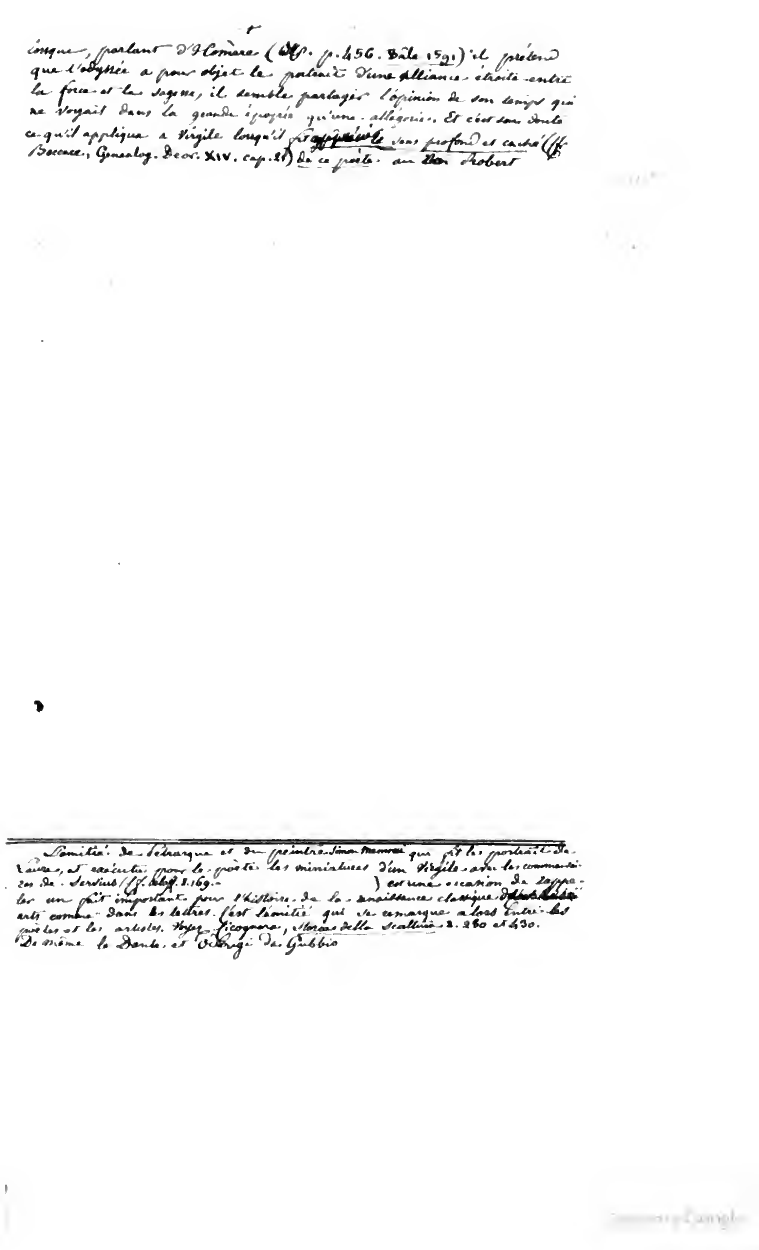 lorsque, parlant d'Homère (Opp. p. 456. Bâle 1591) il prétend
que l'odyssée a pour objet le portrait d'une alliance étroite entre
la force et la sagesse, il semble partager l'opinion de son temps qui
ne voyait dans la grande épopée qu'une allégorie. Et c'est sans doute
ce qu'il appliqua a Virgile lorsqu'il fit sens profond et caché (Cf.
Boccace, Genealog. Deor. XIV. cap. 21) de ce poète au Roi Robert
L'amitié de Pétrarque et du peintre Simon Memmi qui fit les portrait de
Laure, et exécuta pour le poète les miniatures d'un Virgile avec les commentai-
res de Servius (Cf. 8. 169. ) est une occasion de rappe-
ler un fait important pour l'histoire de la renaissance classique
arts comme dans les lettres. C'est l'amitié qui se remarque alors entre les
poètes et les artistes. Voyez Cicognara, Storia della Scultura 2. 280 et 430.
De même le Dante et Oderigi da Gubbio